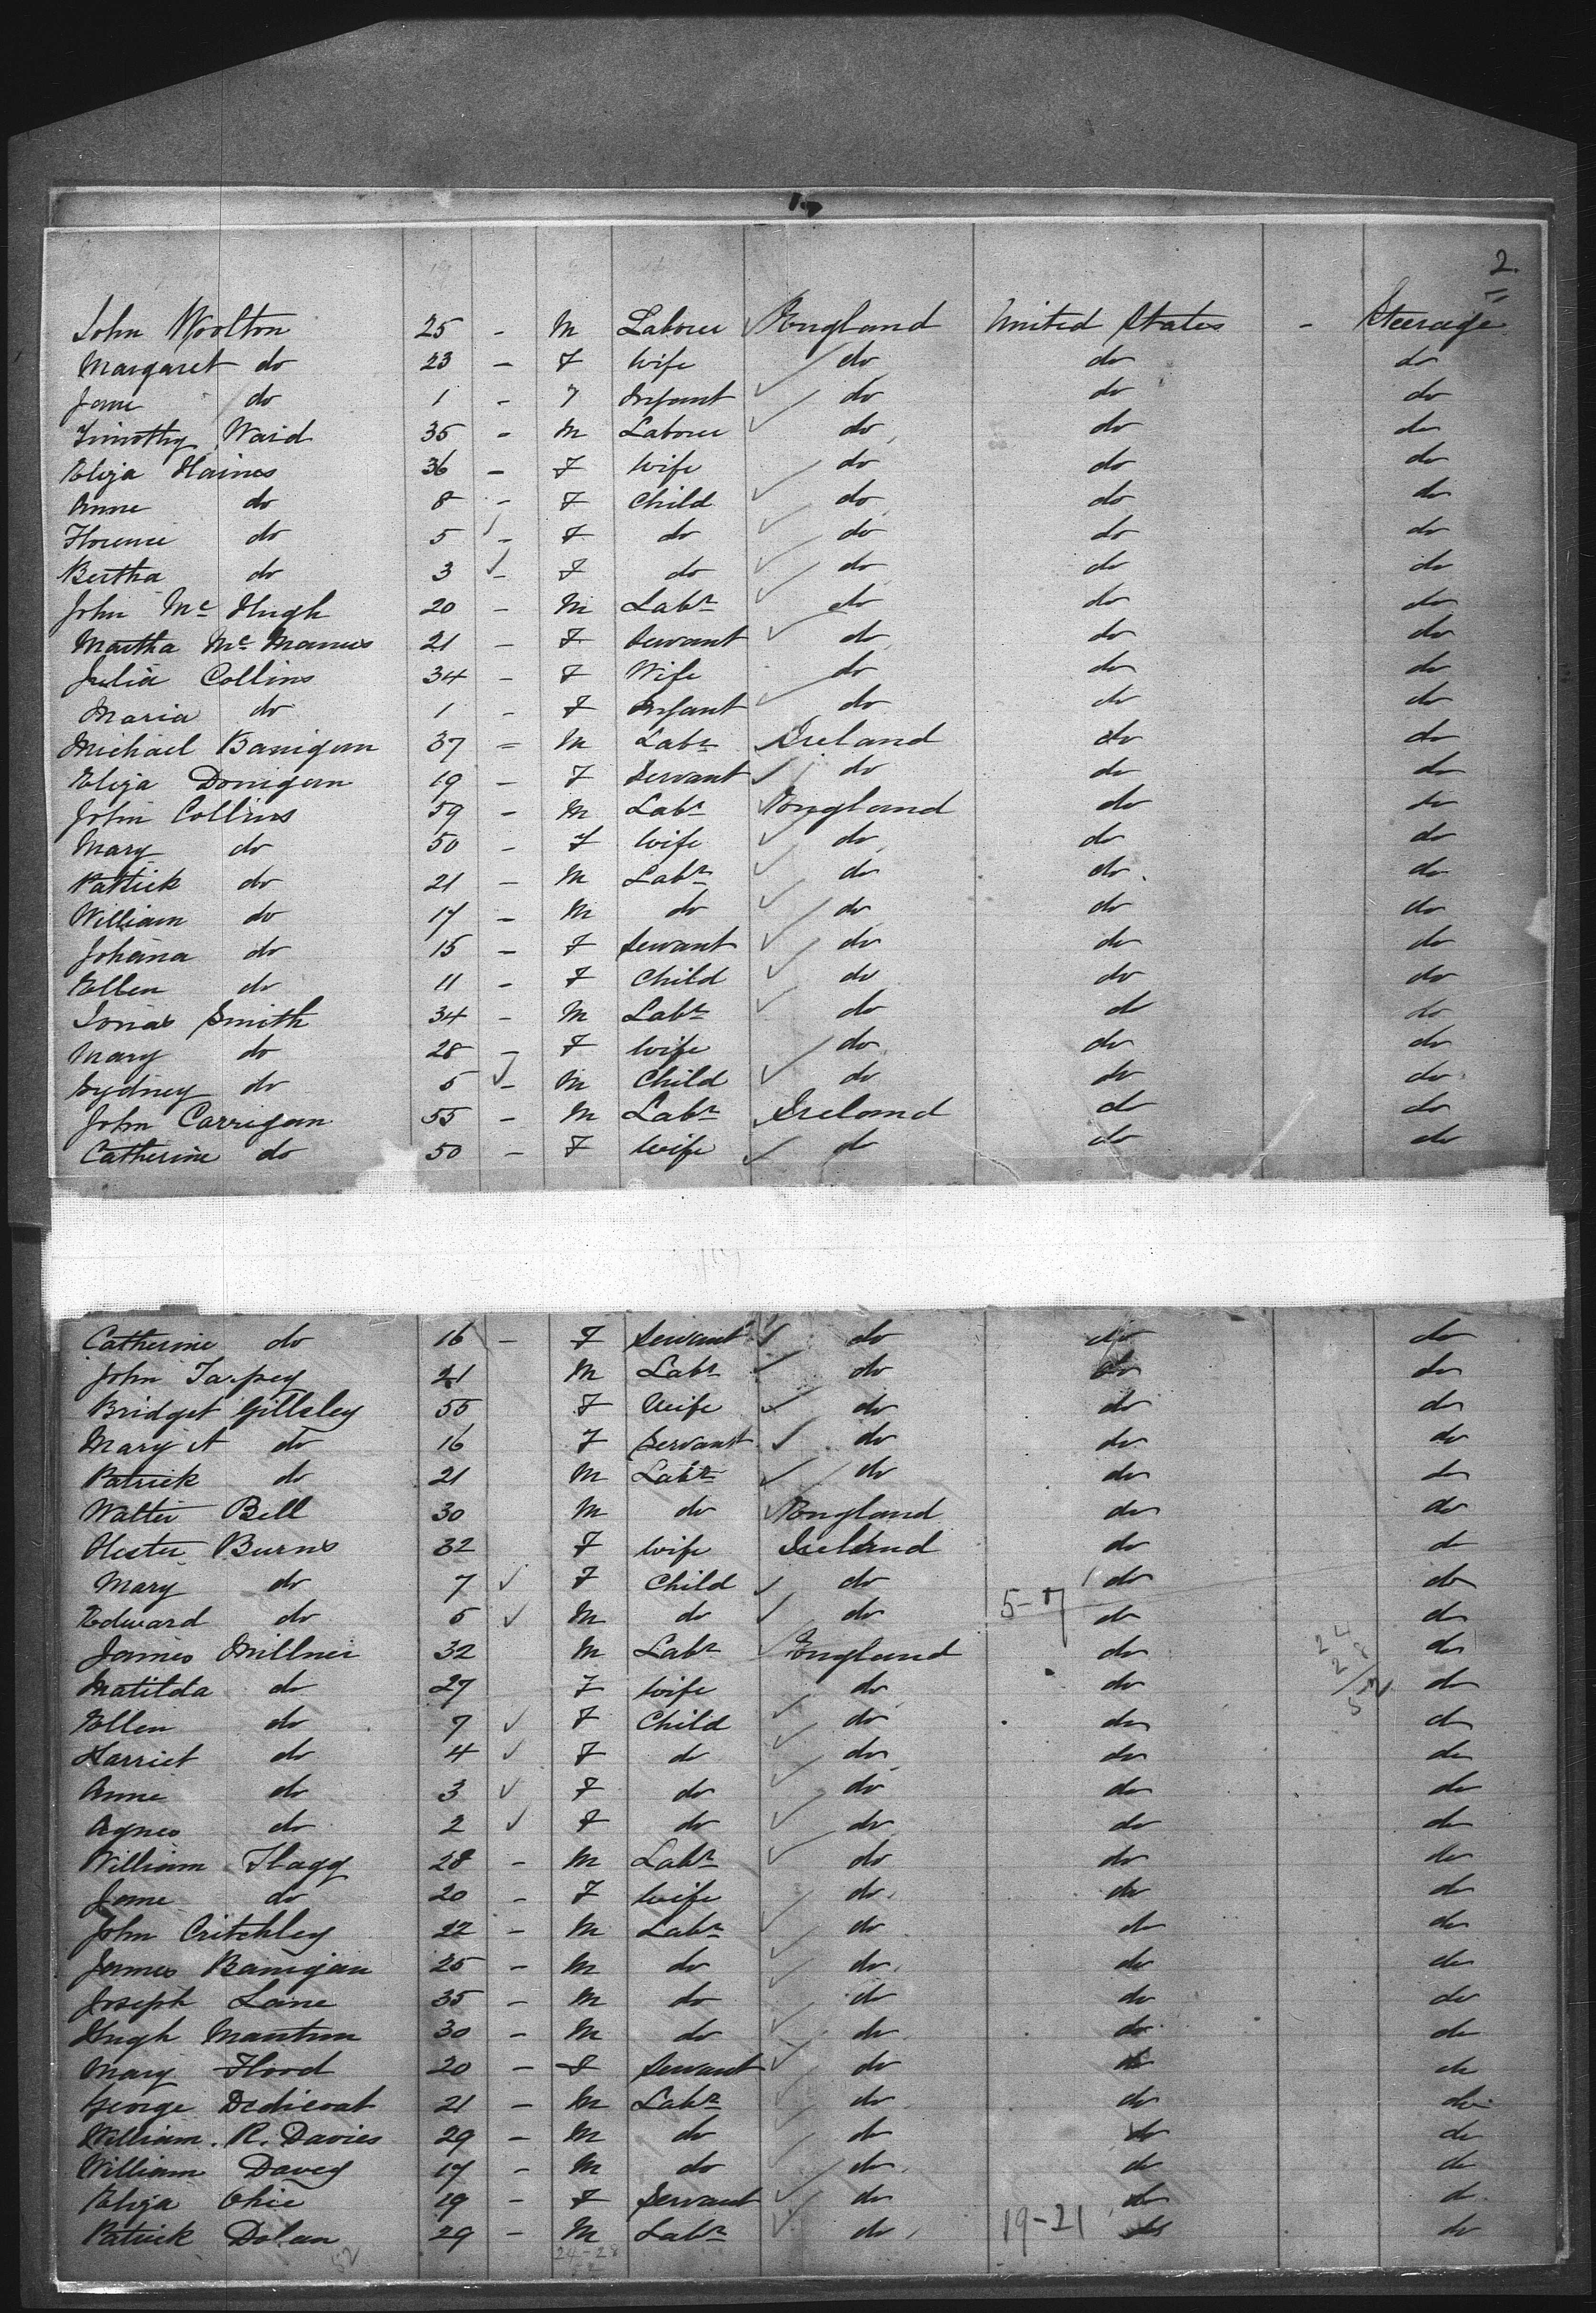 2.
John Woolton 25 - M Labourer England United States - Steerage
Margaret do 23 - F Wife do do do
Jane do 1 - F Infant do do do
Timothy Ward 35 - M Labourer do do do
Eliza Haines 36 - F Wife do do do
Anne do 8 - F Child do do do
Florence do 5 - F do do do do
Bertha do 3 - F do do do do
John Mc Hugh 20 - M Labr do do do
Martha Mc Manus 21 - F Servant do do do
Julia Collins 34 - F Wife do do do
Maria do 1 - F Infant do do do
Michael Banigan 37 - M Labr Ireland do do
Eliza Donigan 19 - F Servant do do do
John Collins 59 - M Labr England do do
Mary do 50 - F Wife do do do
Patrick do 21 - M Labr do do do
William do 17 - M do do do do
Johana do 15 - F Servant do do do
Ellen do 11 - F Child do do do
Jonas Smith 34 - M Labr do do do
Mary do 28 - F Wife do do do
Sydney do 5 - M Child do do do
John Carrigan 55 - M Labr Ireland do do
Catherine do 50 - F Wife do do do
Catherine do 16 - F Servant do do do
John Tarpey 21 M Labr do do do
Bridget Gillsley 55 F Wife do do do
Mary A do 16 F Servant do do do
Patrick do 21 M Labr do do do
Walter Bell 30 M do England do do
Hester Burns 32 F Wife Ireland do do
Mary do 7 F Child do do do
Edward do 5 M do do 5-7 do do
James Millner 32 M Labr England do do
Matilda do 27 F Wife do do do
Ellen do 7 F Child do do do
Harriet do 4 F do do do do
Anne do 3 F do do do do
Agnes do 2 F do do do do
William Flagg 28 - M Labr do do do
Jane do 20 - F Wife do do do
John Critchley 22 - M Labr do do do
James Banigan 25 - M do do do do
Joseph Lane 35 - M do do do do
Hugh Mantun 30 - M do do do do
Mary Flood 20 - F Servant do do do
George Dedicoat 21 - M Labr do do do
William. R. Davies 29 - M do do do do
William Davey 17 - M do do do do
Eliza 19 - F Servant do do do
Patrick Dolan 29 - M Labr do 19-21 do do
52 24-28